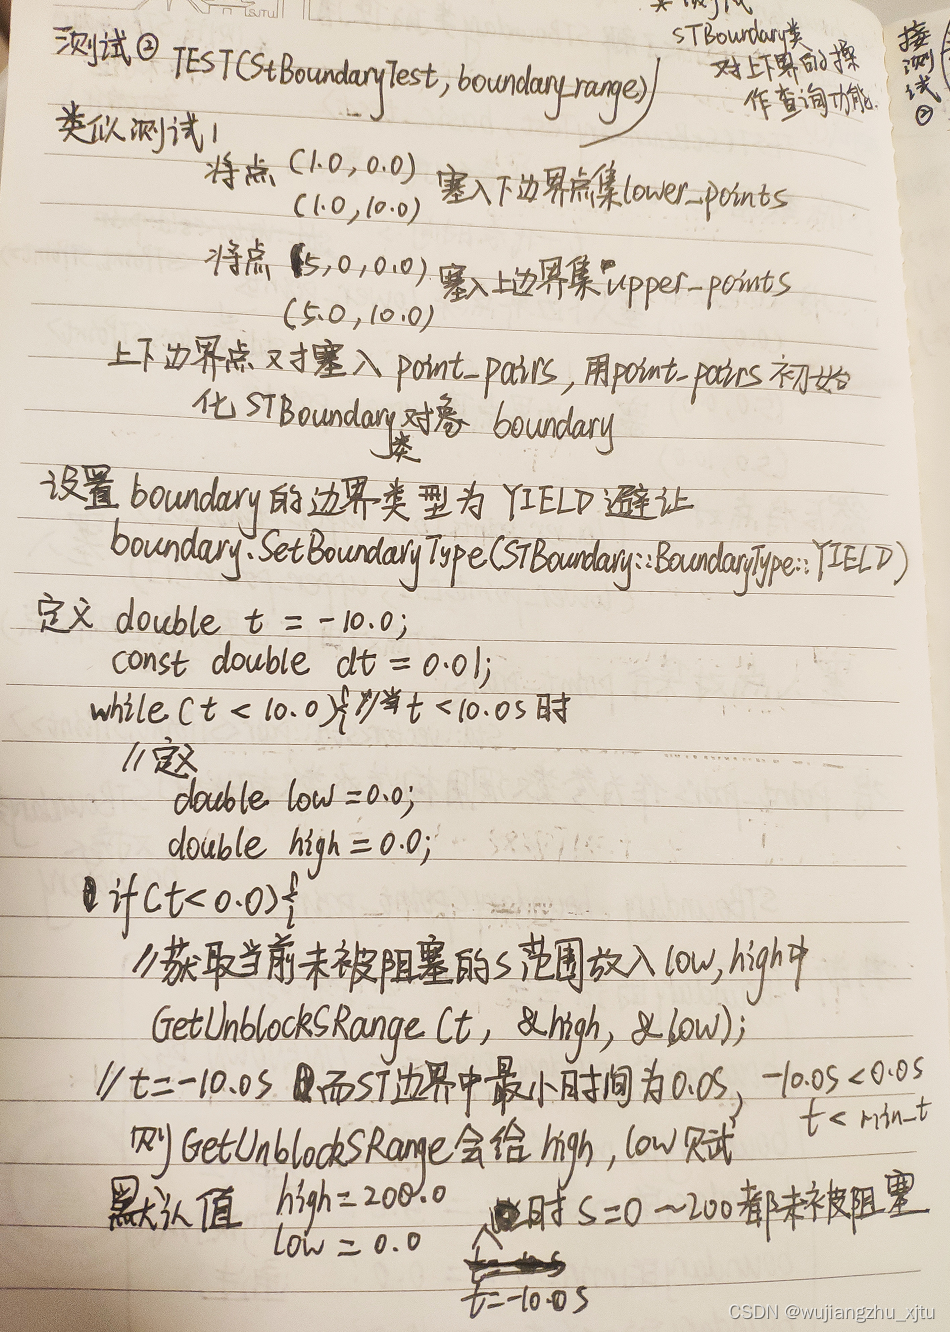 测试② TEST(StBoundaryTest, boundary_range)
STBoundary类
对上下界的操
作查询功能.
接
测
试
②
类似测试1
将点 (1.0, 0.0)
(1.0, 10.0)
塞入下边界点集lower_points
将点 (5,0, 0.0)
(5.0, 10.0)
塞入上边界集upper_points
上下边界点对塞入 point_pairs, 用point_pairs 初始
化 STBoundary类对象 boundary
设置 boundary的边界类型为 YIELD 避让
boundary.SetBoundaryType(STBoundary::BoundaryType::YIELD)
定义 double t = -10.0;
const double dt = 0.01;
while (t < 10.0){ //当t <10.0s 时
//定义
double low = 0.0;
double high = 0.0;
if (t< 0.0){
//获取当前未被阻塞的s范围放入low, high中
GetUnblockSRange (t, &high, &low);
//t=-10.0s 而ST边界中最小时间为0.0s, -10.0s <0.0s
t < min_t
则 GetUnblockSRange 会给 high, low 赋
默认值 high = 200.0
low = 0.0
时 s=0 ~200都未被阻塞
t=-10.0s
CSDN @wujiangzhu_xjtu